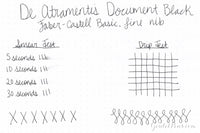 De Atramentis Document Black
Faber-Castell Basic, fine nib
Smear Test
Drip Test
5 seconds
10 seconds
20 seconds
30 seconds